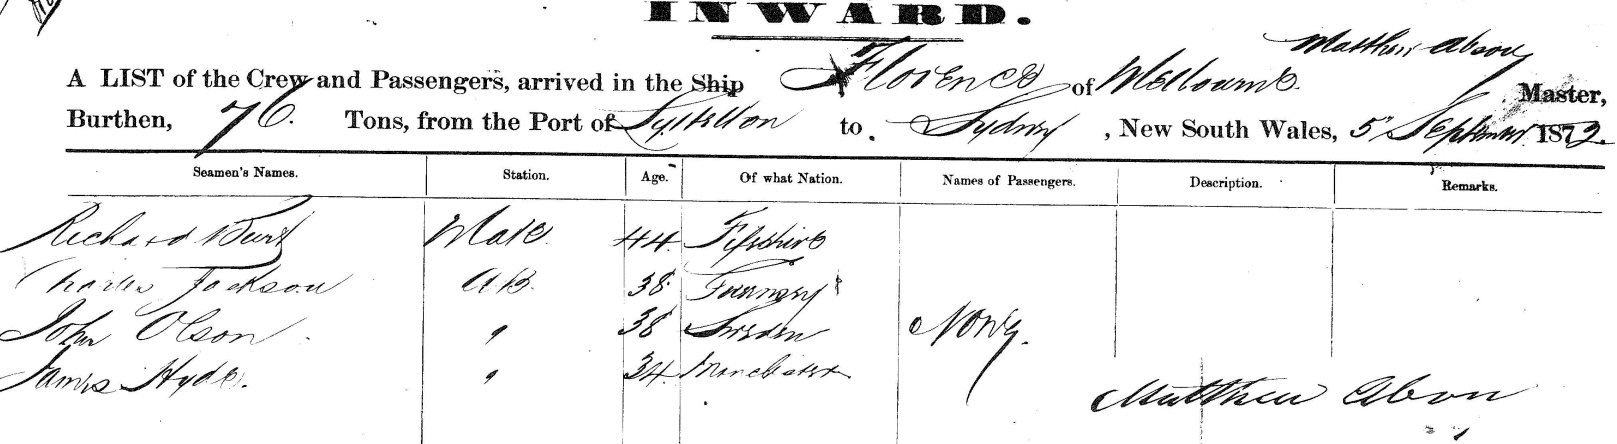 INWARD.
Matthew
A LIST of the Crew and Passengers, arrived in the Ship Florence of Melbourne Master,
Burthen, 76 Tons, from the Port of Lyttelton to Sydney, New South Wales, 5th September 1872.
Seamen's Names. Station. Age. Of what Nation. Names of Passengers. Description. Remarks.
Richard Burt Mate 44 Fifeshire
Charles Jackson A.B. 38
John Olson " 38 Sweden None.
James Hyde. " 34 Manchester
Matthew